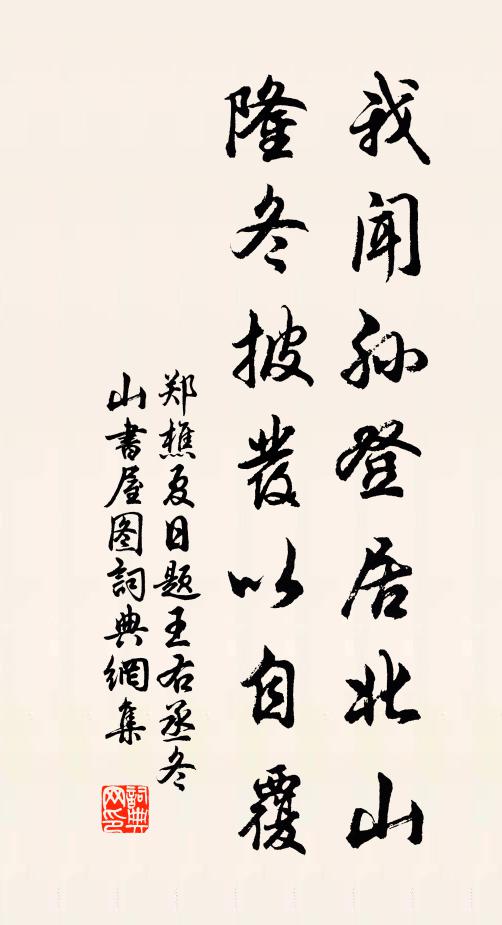 我闻孙登居北山
隆冬披发以自覆
郑樵夏日题王右丞冬
山书屋图词典网集
词典网印